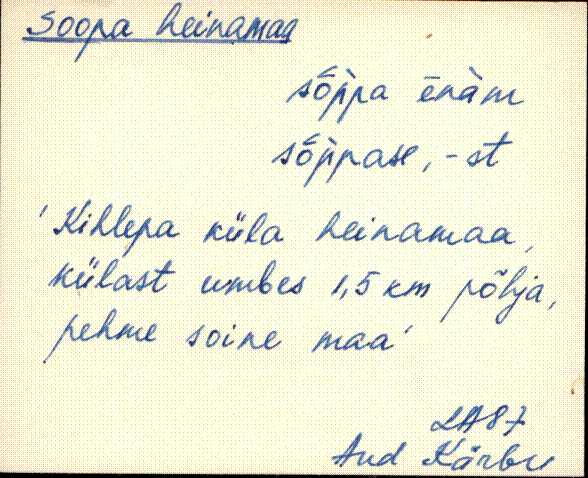 Soopa heinamaa
sõ̀ppa ēnàm
sõ̀ppase, -st
'Kihlepa küla heinamaa,
külast umbes 1,5 km põhja,
pehme soine maa'
LA87
And Kärbu